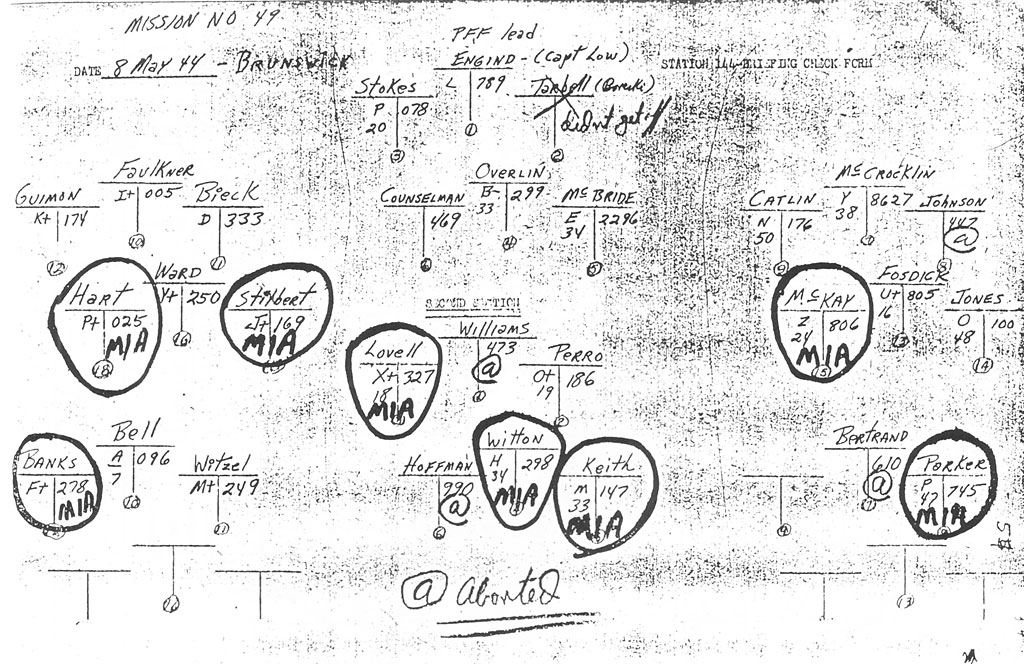 MISSION NO 49
PFF lead
DATE 8 May 44 - BRUNSWICK
ENGIND - (Capt Low)
STATION 144-BRIEFING CHECK FORM
L 789
Stokes
P 078
20
Tarbell
didn't get off
1
3
2
Faulkner
I+ 005
10
GUIMON
K+ 174
12
Bieck
D 333
11
OVERLIN
B- 299
33
COUNSELMAN
469
McBRIDE
E 2296
34
5
McCROCKLIN
Y 8627
38
7
CATLIN
N 176
50
JOHNSON
447
@
WARD
Y+ 250
16
Hart
P+ 025
MIA
18
Stilbert
J+ 169
MIA
SECOND SECTION
WILLIAMS
473
@
Lovell
X+ 327
18
MIA
PERRO
O+ 186
19
FOSDICK
U+ 805
16
13
McKAY
Z 806
24
MIA
15
JONES
O 100
48
14
Bell
A 096
7
BANKS
F+ 278
MIA
Witzel
M+ 249
11
WITTON
H 298
34
MIA
HOFFMAN
990
@
6
Keith
M 147
33
MIA
BERTRAND
610
@
7
Parker
P 745
47
MIA
13
@ Aborted